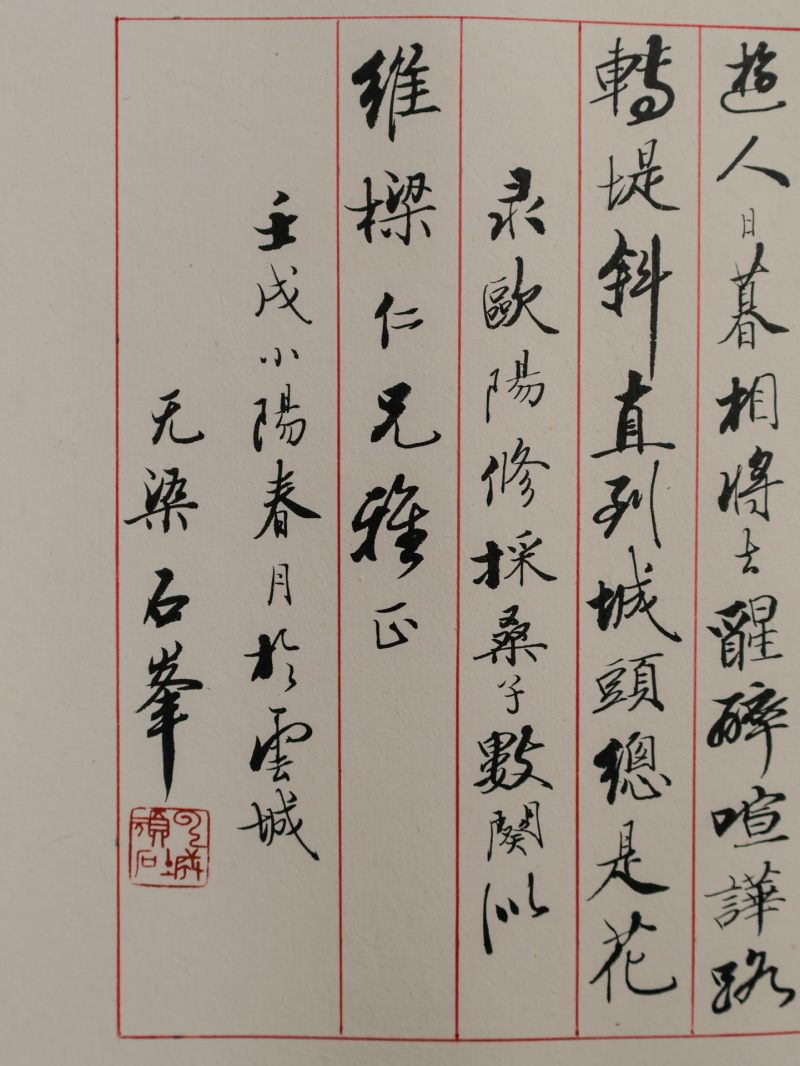 遊人日暮相將去醒醉喧譁路
轉堤斜直到城頭總是花
录歐陽修採桑子數闋似
維樑仁兄雅正
壬戌小陽春月於雲城
无梁石峯